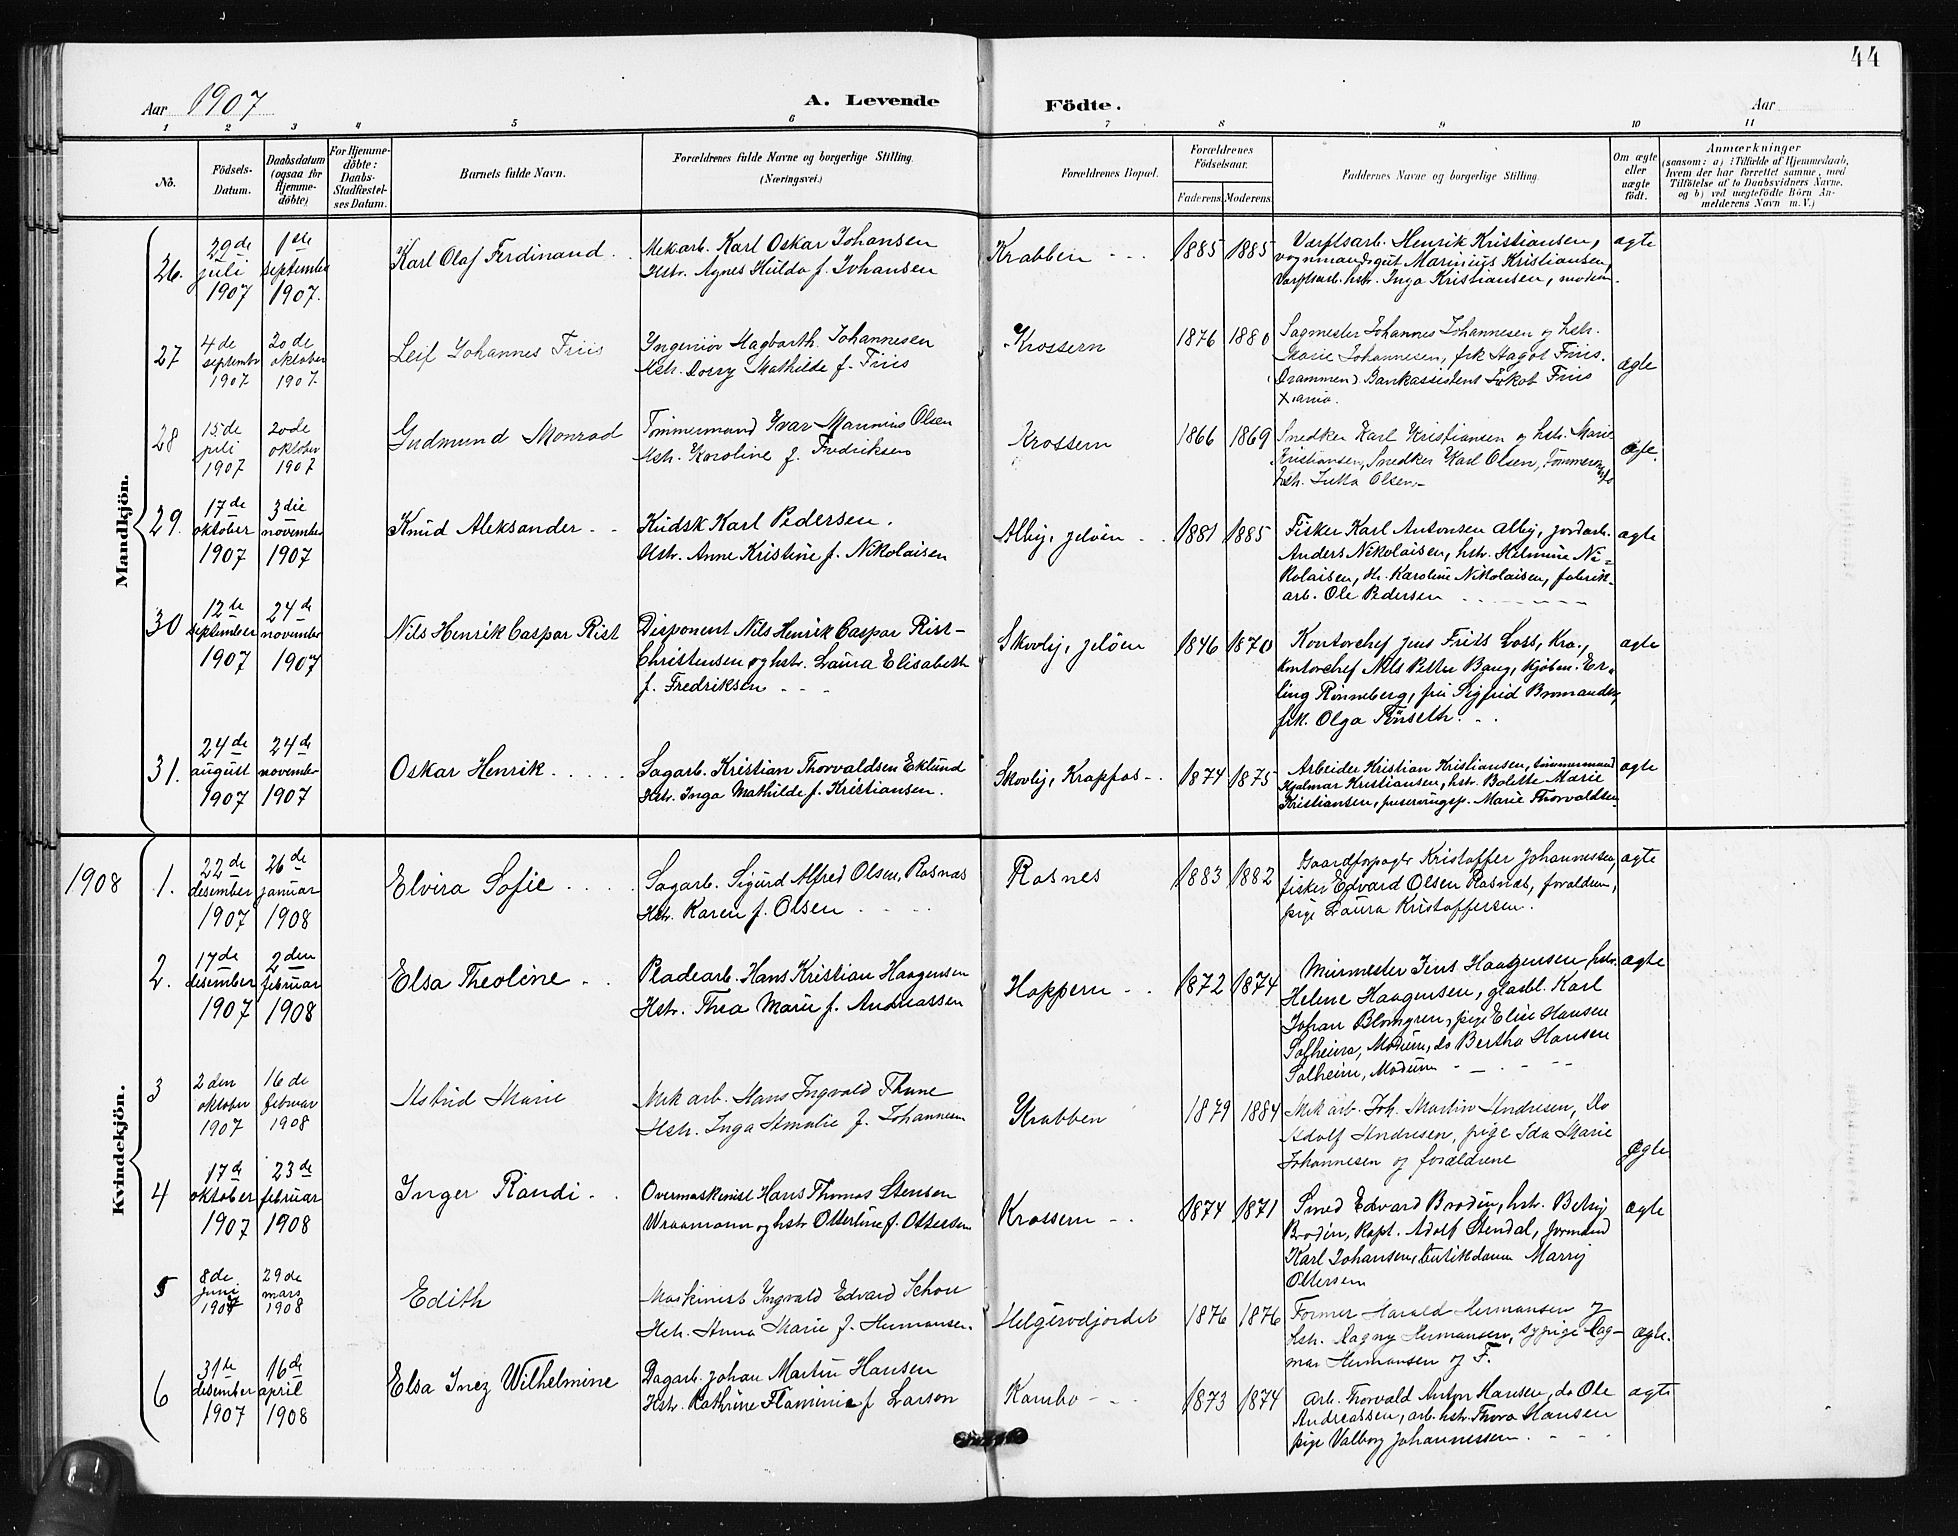 44
Aar 1907
A. Levende
Födte.
Aar
1 2 3 4 5 6 7 8 9 10 11
No.
Födsels-
Datum.
Daabsdatum
(ogsaa for
Hjemme-
döbte)
For Hjemme-
döbte:
Daabs-
Stadfæstel-
ses Datum.
Barnets fulde Navn.
Forældrenes fulde Navne og borgerlige Stilling.
(Næringsvei.)
Forældrenes Bopæl.
Forældrenes
Födselsaar.
Faderens
Moderens
Faddernes Navne og borgerlige Stilling.
Om ægte
eller
uægte
födt.
Anmærkninger
(saasom: a) i Tilfælde af Hjemmedaab,
hvem der har forrettet samme, med
Tilföielse af to Daabsvidners Navne,
og b) ved uægtefödte Börn An-
melderens Navn m. V.)
Mandkjön.
26.
29de
juli
1907
1ste
september
1907.
Karl Olaf Ferdinand
Mek arb. Karl Oskar Johansen
Hstr. Agnes Hulda f. Johansen
Krabben
1885
1885
Værftsarb. Henrik Kristiansen,
vognmandsgut Marinius Kristiansen,
Værftsarb. hstr. Inga Kristiansen, moderen.
ægte
27
4de
septembr
1907
20de
oktober
1907.
Leif Johannes Friis
Ingeniør Hagbarth Johannesen
Hstr. Dorry Mathilde f. Friis
Krossern
1876
1880
Sagmester Johannes Johannesen og hstr.
Marie Johannesen, frk Aagot Friis.
(Drammen) Bankassistent Jakob Friis
Xiania.
ægte
28
15de
juli
1907
20de
oktober
1907
Gudmund Monrad
Tømmermand Ivar Marinius Olsen
Hstr. Karoline f. Fredriksen
Krossern
1866
1869
Snedker Karl Kristiansen og hstr. Marie
Kristiansen, Snedker Karl Olsen,
hstr. Jutta Olsen.
ægte.
29.
17de
oktober
1907
3die
november
1907
Knud Aleksander
Kudsk Karl Pedersen.
Hstr. Anne Kristine f. Nikolaisen
Alby, jeløen
1881
1885
Fisker Karl Antonsen Alby, jordarb.
Anders Nikolaisen, hstr. Helmine Ni-
kolaisen, do. Karoline Nikolaisen, fabrik-
arb. Ole Pedersen
ægte
30
12te
september
1907
24de
november
1907
Nils Henrik Caspar Rist
Disponent Nils Henrik Caspar Rist-
Christensen og hstr. Laura Elisabeth
f. Fredriksen
Skovly, jeløen
1846
1870
Kontorchef Jens Friis Loss, Kra.,
kontorchef Nils Petter Bang, Kjøben. Er-
ling Rønneberg, fru Sigfrid
frk. Olga Tønseth.
ægte
31.
24de
august
1907
24de
november
1907
Oskar Henrik
Sagarb. Kristian Thorvaldsen Eklund
Hstr. Inga Mathilde f. Kristiansen.
Skovly, Krappfos
1874
1875
Arbeider Kristian Kristiansen, tømmermand
Hjalmar Kristiansen, hstr. Bolette Marie
Kristiansen, Marie Thorvaldsen
ægte
1908
Kvindekjön.
1.
22de
desember
1907
26de
januar
1908
Elvira Sofie
Sagarb. Sigurd Alfred Olsen, Rosnæs
Hstr. Karen f. Olsen
Rosnes
1883
1882
Gaardforpagter Kristoffer Johannessen,
fisker Edvard Olsen Rosnæs, forældrene,
pige Laura Kristoffersen.
ægte
2.
17de
desember
1907
2den
februar
1908
Elsa Theoline
Pladearb. Hans Kristian Haagensen
Hstr. Thea Marie f. Andreassen
Hoppern
1872
1874
Murmester Jens Haagensen, hstr.
Helene Haagensen, glarbl. Karl
Johan Blomgren, pige Elise Hansen
Solheim, Modum, do Bertha Hansen
Solheim, Modum
ægte
3
2den
oktober
1907
16de
februar
1908
Astrid Marie
Mek arb. Hans Ingvald Thune
Hstr. Inga Amalie f. Johannesen
Krabben
1879
1884
Mek arb. Joh. Martin Andresen, Do
Adolf Andresen, pige Ida Marie
Johannesen og forældrene
ægte
4
17de
oktober
1907
23de
februar
1908
Inger Randi
Overmaskinist Hans Thomas Stensen
Wraamann og hstr Otterline f. Ottersen
Krossern
1874
1871
Smed Edvard Brodin, hstr. Betsy
Brodin, Kapt. Adolf Stendal, formand
Karl Johansen, butikdame Marry
Ottersen
ægte
5
8de
juni
1907
29de
mars
1908
Edith
Maskinist Ingvald Edvard Schou
Hstr. Anna Marie f. Hermansen.
Helgerødjordet
1876
1876
Former Harald Hermansen og
hstr. Dagny Hermansen, sypige Dag-
mar Hermansen og F.
ægte.
6
31te
desember
1907
16de
april
1908
Elsa Inez Wilhelmine
Dagarb. Johan Martin Hansen
Hstr. Kathrine Flaminie f Larson
Kambo
1873
1874
Arb. Thorvald Anton Hansen, do Ole
Andreassen, arb. hstr. Thora Hansen
pige Valborg Johannessen.
ægte